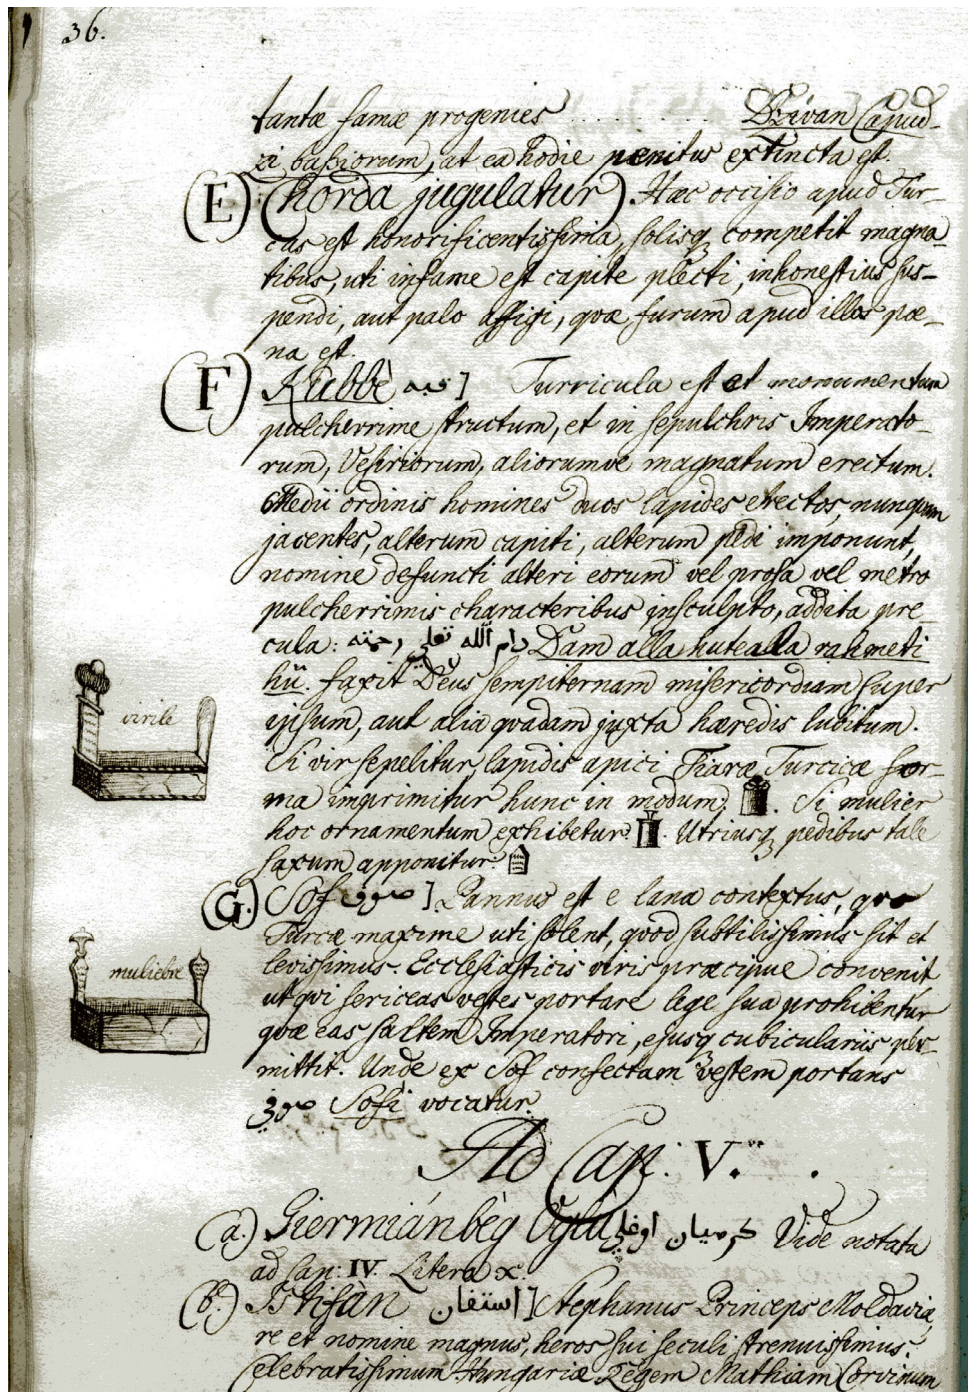 36.
tantæ famæ progenies . . . . . . . . . . Dzivan Capud-
zi bassiorum, at ea hodie pænitus extincta est.
E (Chorda jugulatur). Hæc occisio apud Tur-
cas est honorificentissima, solisq competit magna-
tibus, uti infame est capite plecti, inhonestius sus-
pendi, aut palo affigi, qvæ furum apud illos pœ-
na est.
F Kubbè قبه ] Turricula est et monumentum
pulcherrime structum, et in sepulchris Imperato-
rum, Vesiriorum, aliorumve magnatum erectum.
Medii ordinis homines duos lapides erectos, nunquam
jacentes, alterum capiti, alterum pedi imponunt,
nomine defuncti alteri eorum vel prosa vel metro
pulcherrimis characteribus insculpto, addita pre-
cula: دام الله تعلي رحمته Dam alla hutealla rahmeti
hü. faxit Deus sempiternam misericordiam super
ipsum, aut alia qvadam juxta hæredis lubitum.
virile
Si vir sepelitur, lapidis apici Tiaræ Turcicæ for-
ma imprimitur hunc in modum. Si mulier
hoc ornamentum exhibetur. Utriusq pedibus tale
saxum apponitur.
G. Sof صوف ] Pannus est e lana contextus, qvo
Turcæ maxime uti solent, qvod subtilissimus sit et
levissimus. Ecclesiasticis viris præcipue convenit
muliebre
ut qvi sericeas vestes portare lege sua prohibentur
qvæ eas saltem Imperatori, ejusq cubiculariis per-
mittit. Unde ex Sof confectam vestem portans
صوفي Sofi vocatur.
Ad Cap: V.
(a.) Giermiánbèg Oglu كرميان اوغلي Vide notata
ad Cap: IV. Litera x.
(b.) Istifàn استفان ] Stephanus Princeps Moldaviæ,
re et nomine magnus, heros sui seculi strenuissimus.
Celebratissimum Hungariæ Regem Mathiam Corvinum